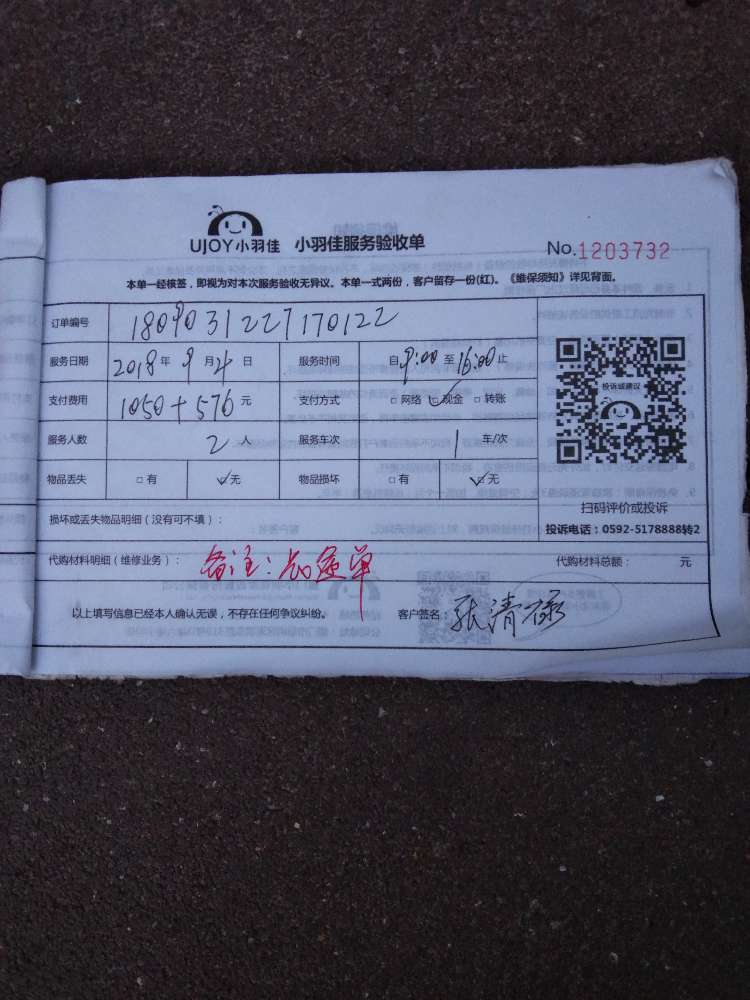 UJOY小羽佳 小羽佳服务验收单 No.1203732
本单一经核签，即视为对本次服务验收无异议。本单一式两份，客户留存一份(红)。《维保须知》详见背面。
订单编号 1809031227170122
服务日期 2018年9月4日 服务时间 自9:00至16:00止
支付费用 1050+576元 支付方式 □网络 ☑现金 □转账
服务人数 2人 服务车次 1车/次
物品丢失 □有 ☑无 物品损坏 □有 ☑无
投诉或建议
扫码评价或投诉
投诉电话：0592-5178888转2
损坏或丢失物品明细（没有可不填）：
代购材料明细（维修业务）： 备注：长途单 代购材料总额： 元
以上填写信息已经本人确认无误，不存在任何争议纠纷。 客户签名：张清禄